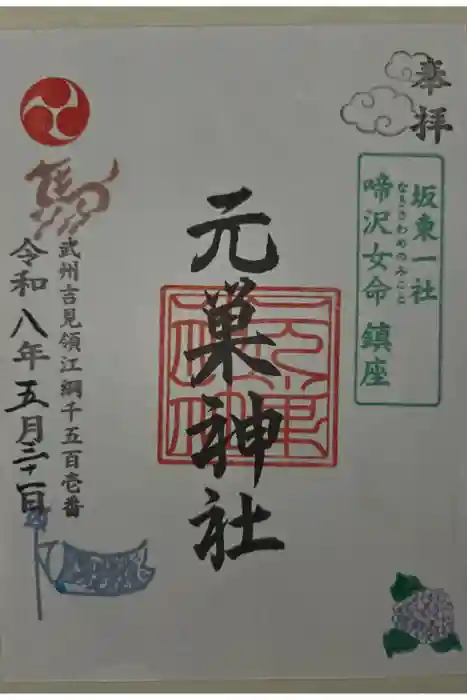 奉拝
坂東一社
なきさわめのみこと
啼沢女命 鎮座
元巣神社
武州吉見領江綱千五百壱番
令和八年五月三十一日